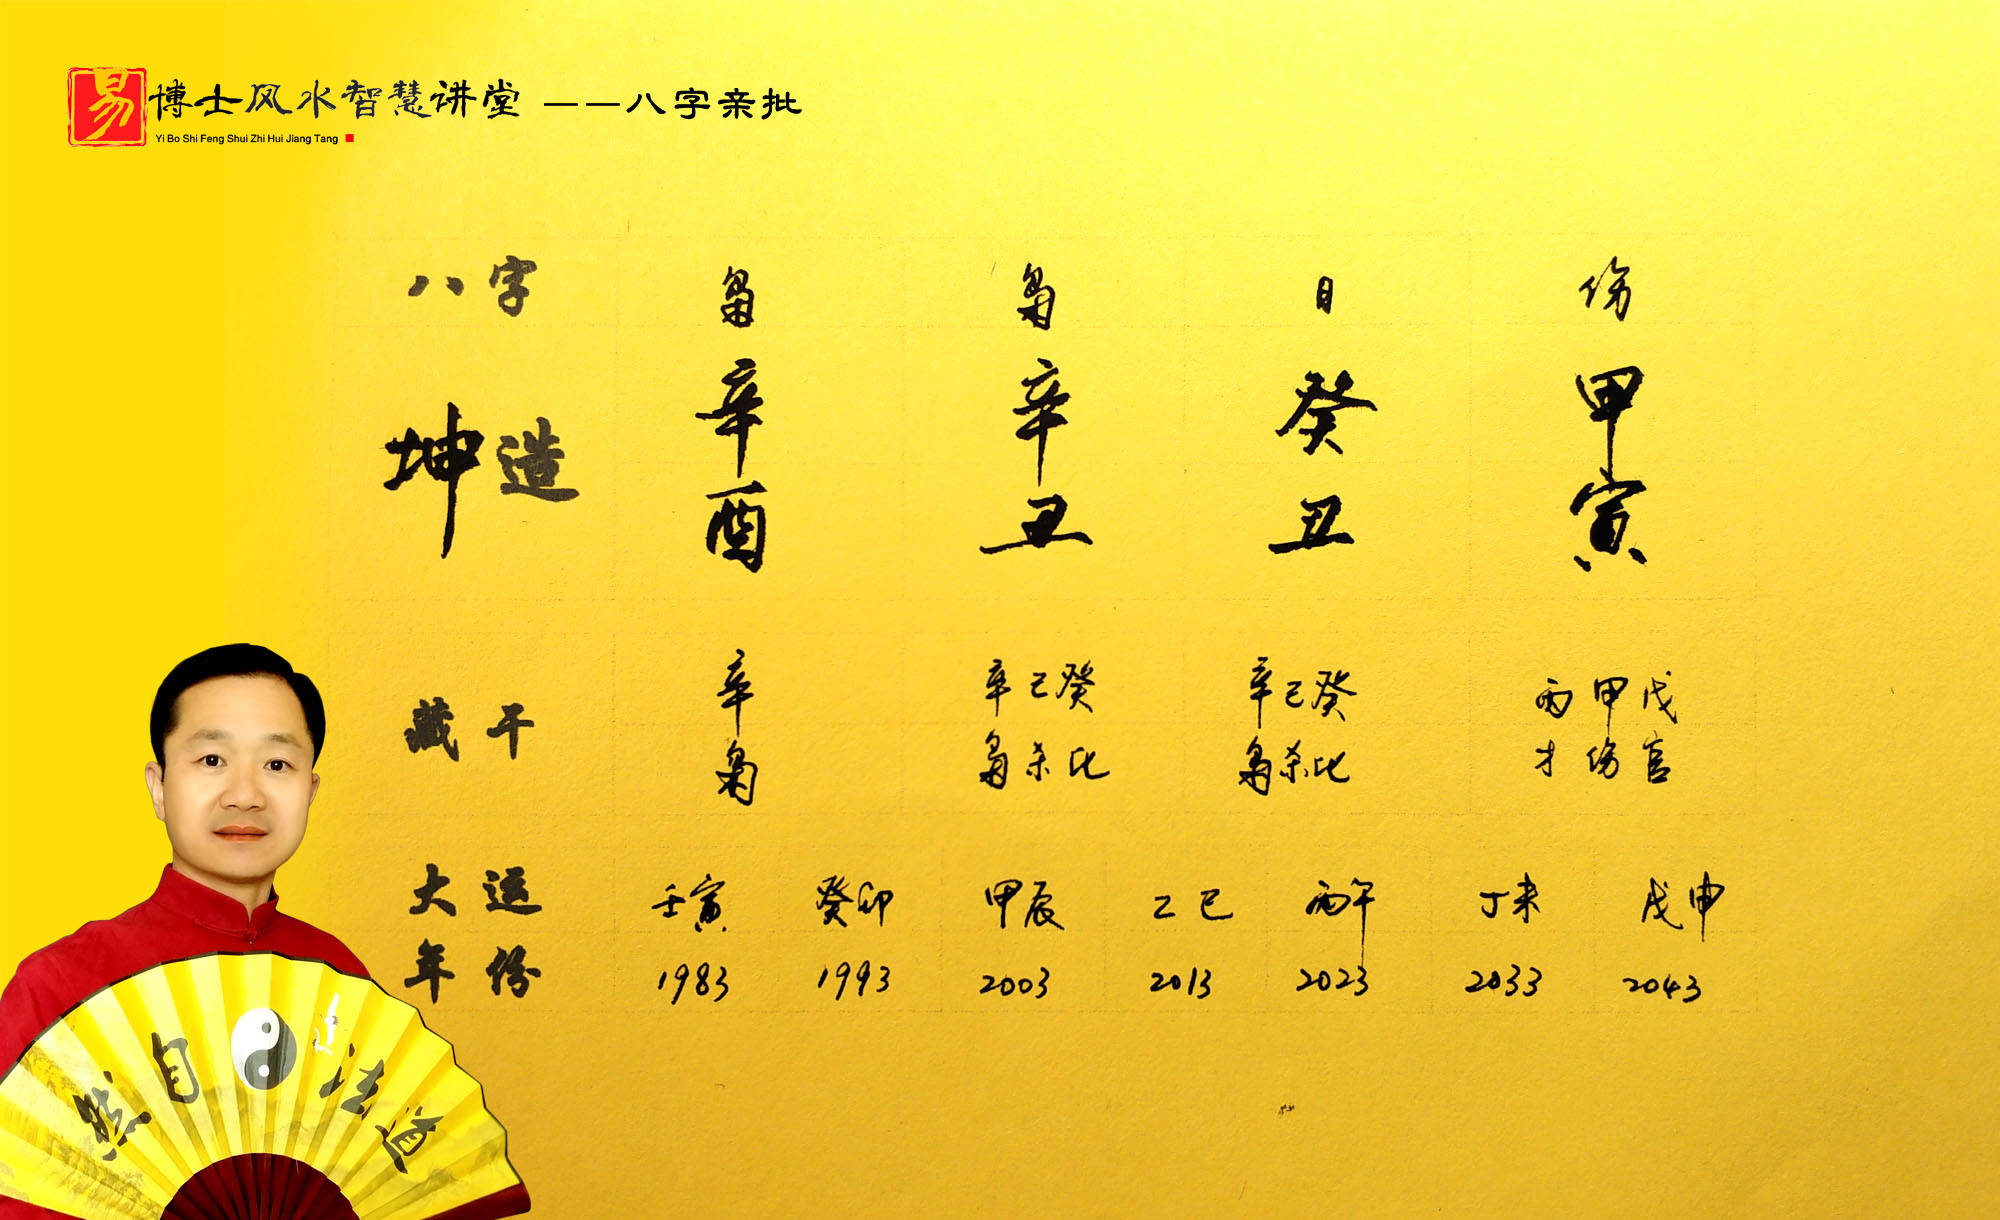 易博士风水智慧讲堂 ——八字亲批
Yi Bo Shi Feng Shui Zhi Hui Jiang Tang
八字 枭 枭 日 伤
坤造 辛酉 辛丑 癸丑 甲寅
藏干 辛 辛己癸 辛己癸 丙甲戊
枭 枭杀比 枭杀比 才伤官
大运 壬寅 癸卯 甲辰 乙巳 丙午 丁未 戊申
年份 1983 1993 2003 2013 2023 2033 2043
道法自然